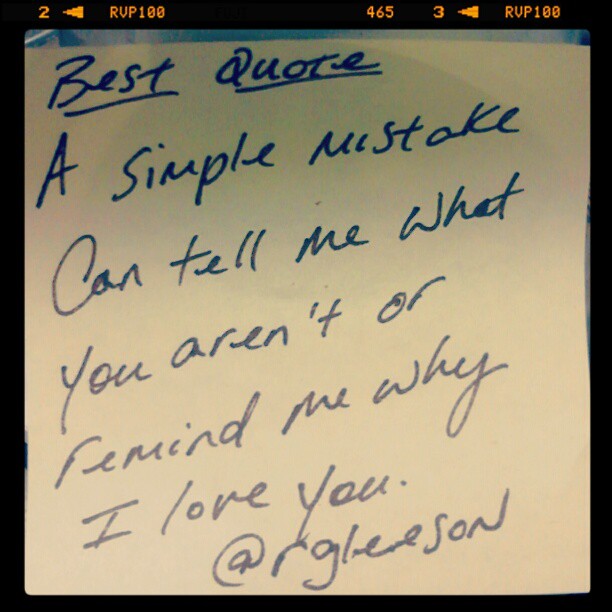 2 RVP100 465 3 RVP100
Best Quote
A simple mistake
Can tell me what
you aren't or
remind me why
I love you.
@rgleeson